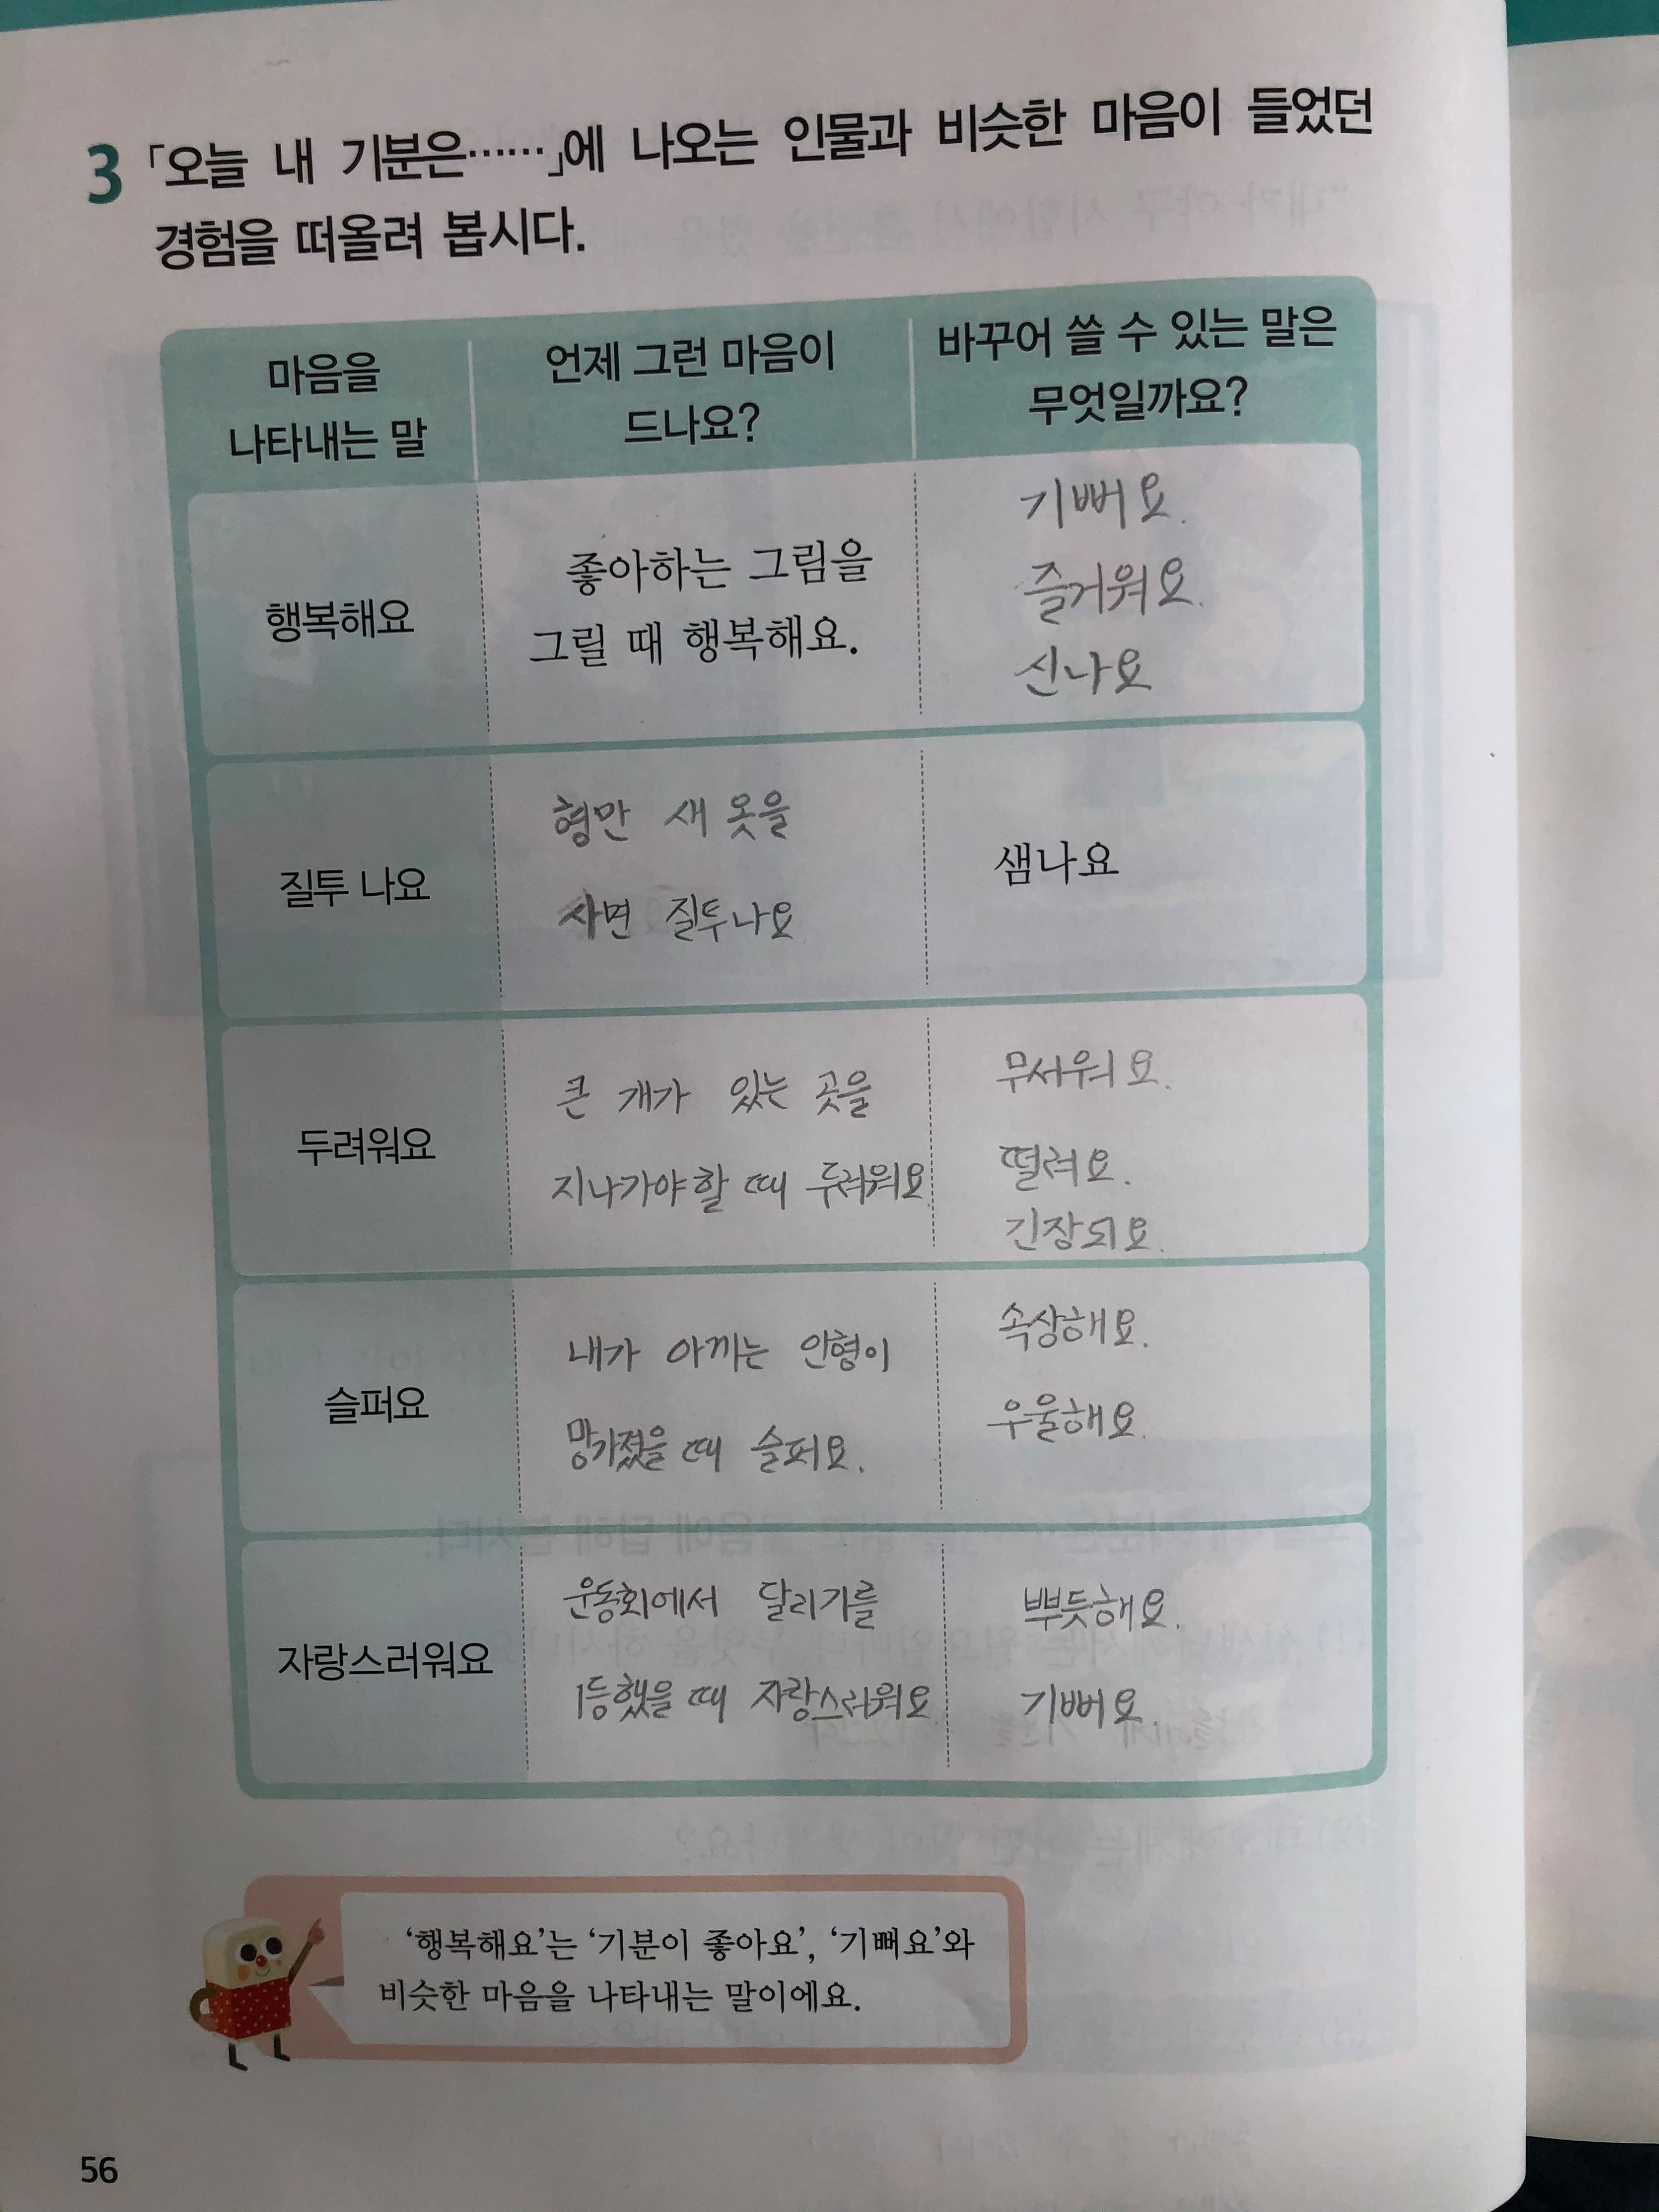 3 「오늘 내 기분은……」에 나오는 인물과 비슷한 마음이 들었던
경험을 떠올려 봅시다.
마음을
나타내는 말
언제 그런 마음이
드나요?
바꾸어 쓸 수 있는 말은
무엇일까요?
행복해요
좋아하는 그림을
그릴 때 행복해요.
기뻐요.
즐거워요.
신나요
질투 나요
형만 새 옷을
사면 질투나요
샘나요
두려워요
큰 개가 있는 곳을
지나가야할 때 두려워요.
무서워요.
떨려요.
긴장되요.
슬퍼요
내가 아끼는 인형이
망가졌을 때 슬퍼요.
속상해요.
우울해요.
자랑스러워요
운동회에서 달리기를
1등했을 때 자랑스러워요.
뿌듯해요.
기뻐요.
‘행복해요’는 ‘기분이 좋아요’, ‘기뻐요’와
비슷한 마음을 나타내는 말이에요.
56